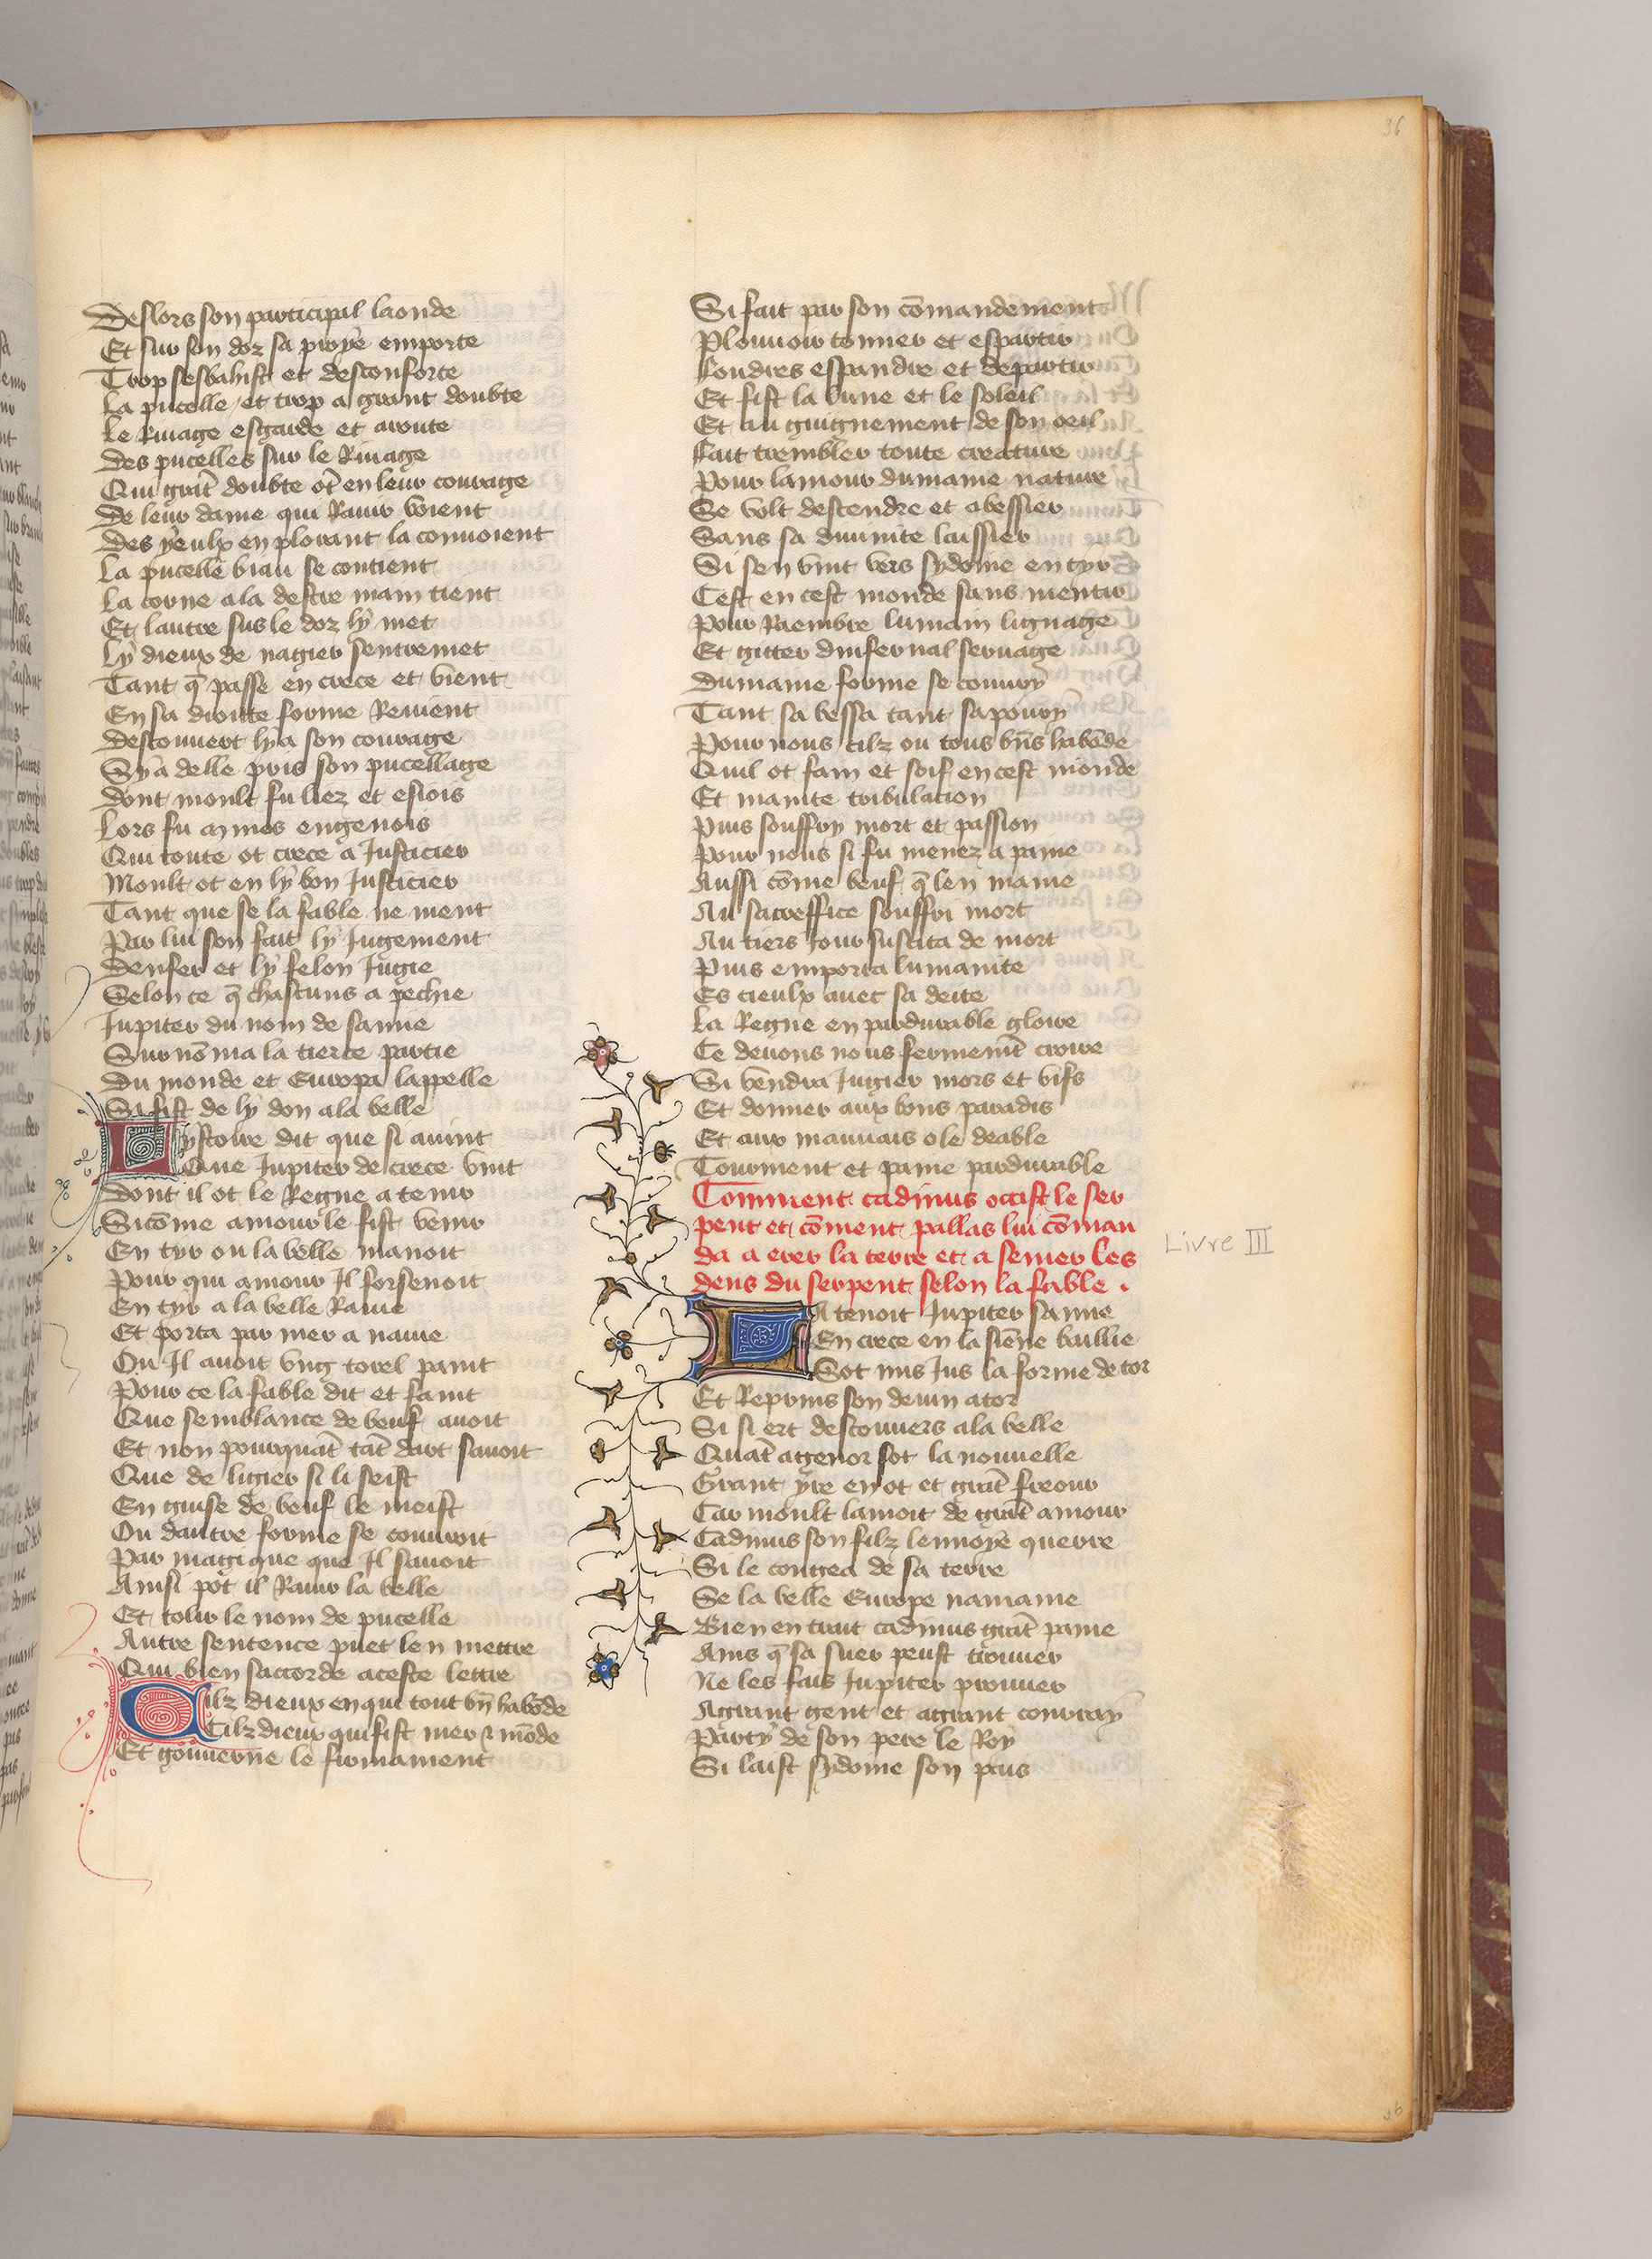 96
Deslors son participil laonde
Et sur son doz sa proye emporte
Trop sesbahist et desconforte
La pucelle et trop a grant doubte
Le Riuage esgarde et aroute
Des pucelles sur le Riuage
Qui grāt doubte ōt en leur courage
De leur dame qui Rauir voient
Des yeulx en plorant la conuoient
La pucelle biau se contient
La corne a la destre main tient
Et lautre sus le doz ly met
Ly dieux de nagier sentremet
Tant q̄ passe en crece et vient
En sa droitte forme Reuient
Descouuert ly a son courage
Sy a delle pris son pucellage
Dont moult fu liez et esiois
Lors fu mynos engenois
Qui toute ot crece a Justicier
Moult ot en ly bon Justicier
Tant que se la fable ne ment
Par lui son fait ly Jugement
Denfer et ly felon Jugie
Selon ce q̄ chascuns a pechie
Jupiter du nom de samie
Surnōma la tierce partie
Du monde et Europa lappelle
Si fist de ly don a la belle
Lystoire dit que si auint
Que Jupiter de crece vint
Dont il ot le Regne a tenir
Sicōme amour le fist venir
En tyr ou la belle manoit
Pour qui amour Il forsenoit
En tyr a la belle Rauie
Et porta par mer a nauie
Ou Il auoit vng torel paint
Pour ce la fable dit et faint
Que semblance de beuf auoit
Et non pourquāt tāt dart sauoit
Que de ligier si li feist
En guise de beuf le meist
Ou dautre forme se couuroit
Par magique que Il sauoit
Ainsi pot il Rauir la belle
Et tolir le nom de pucelle
Autre sentence puet len mettre
Qui bien saccorde a ceste lettre
Cilz dieux en qui tout bn̄ habōde
Cilz dieux qui fist mer & mōde
Et gouuerne le firmament
Si fait par son cōmandement
Plouuoir tonner et espartir
Foudres espandre et departir
Et fist la lune et le soleil
Et au guignement de son oeil
Fait trembler toute creature
Pour lamour dumaine nature
Se volt descendre et abessier
Sans sa diuinite laissier
Si sen vint vers sydoine en tyr
Cest en cest monde sans mentir
Pour Raembre lumain lignage
Et gitter dinfernal seruage
Dumaine forme se couury
Tant sabessa tant sapoury
Pour nous cilz ou tous bn̄s habōde
Quil ot fain et soif en cest monde
Et mainte tribulacion
Puis souffry mort et passion
Pour nous si fu menez a paine
Aussi cōme beuf q̄ len maine
Au sacreffice souffri mort
Au tiers Jour suscita de mort
Puis emporta lumanite
Es cieulx auec sa deite
La Regne en pardurable gloire
Ce deuons nous fermemēt croire
Si vendra Jugier mors et vifs
Et donner aux bons paradis
Et aux mauuais o le deable
Tourment et paine pardurable
Comment cadmus occist le ser
pent et cōment pallas lui cōman
da a erer la terre et a semer les
dens du serpent selon la fable .
Livre III
Ia tenoit Jupiter samie
En crece en la siēne baillie
Sot mis Jus la forme de tor
Et Repris son deuin ator
Si si ert descouuers a la belle
Quāt agenor sot la nouuelle
Grant yre en ot et grāt freour
Car moult lamoit de grāt amour
Cadmus son filz lenuoye querre
Si le congea de sa terre
Se la belle Europe namaine
Bien en trait cadmus grāt paine
Ains q̄ sa suer peust trouuer
Ne les fais Jupiter prouuer
A grant gent et a grant conuray
Party de son pere le Roy
Si laist sydoine son pais
96